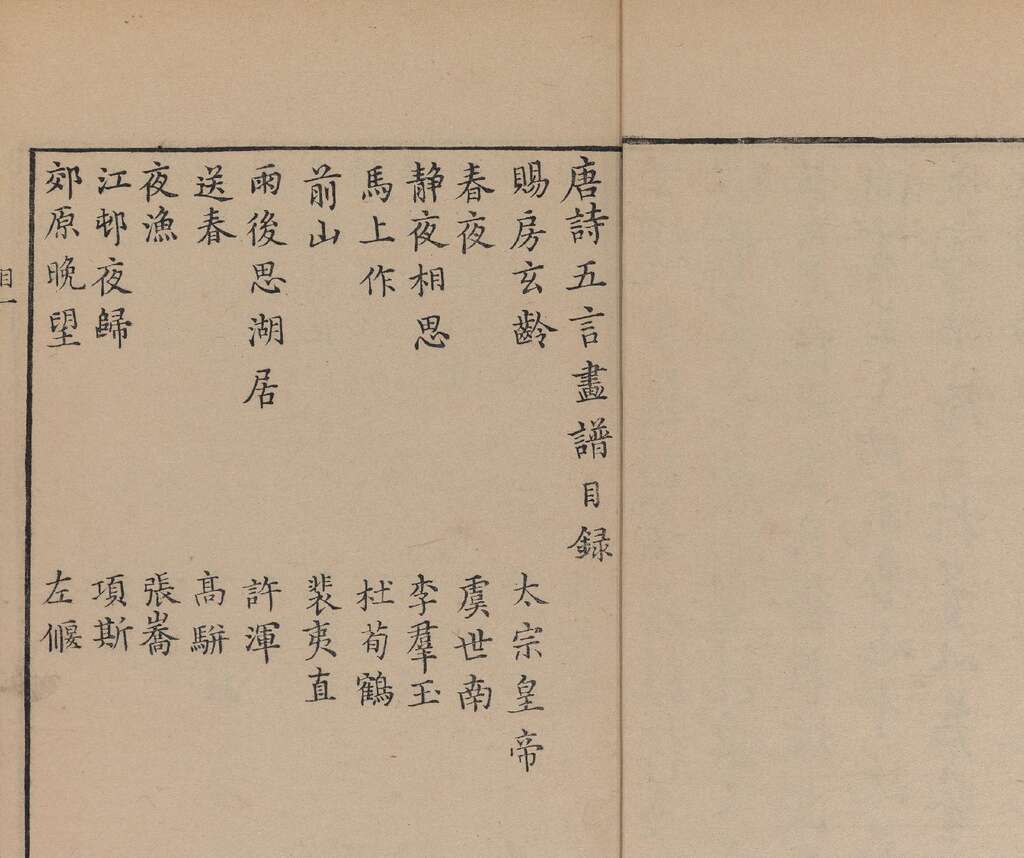 唐詩五言畫譜目録
賜房玄齡 太宗皇帝
春夜 虞世南
静夜相思 李羣玉
馬上作 杜荀鶴
前山 裴夷直
雨後思湖居 許渾
送春 高駢
夜漁 張喬
江邨夜歸 項斯
郊原晚望 左偃
目一